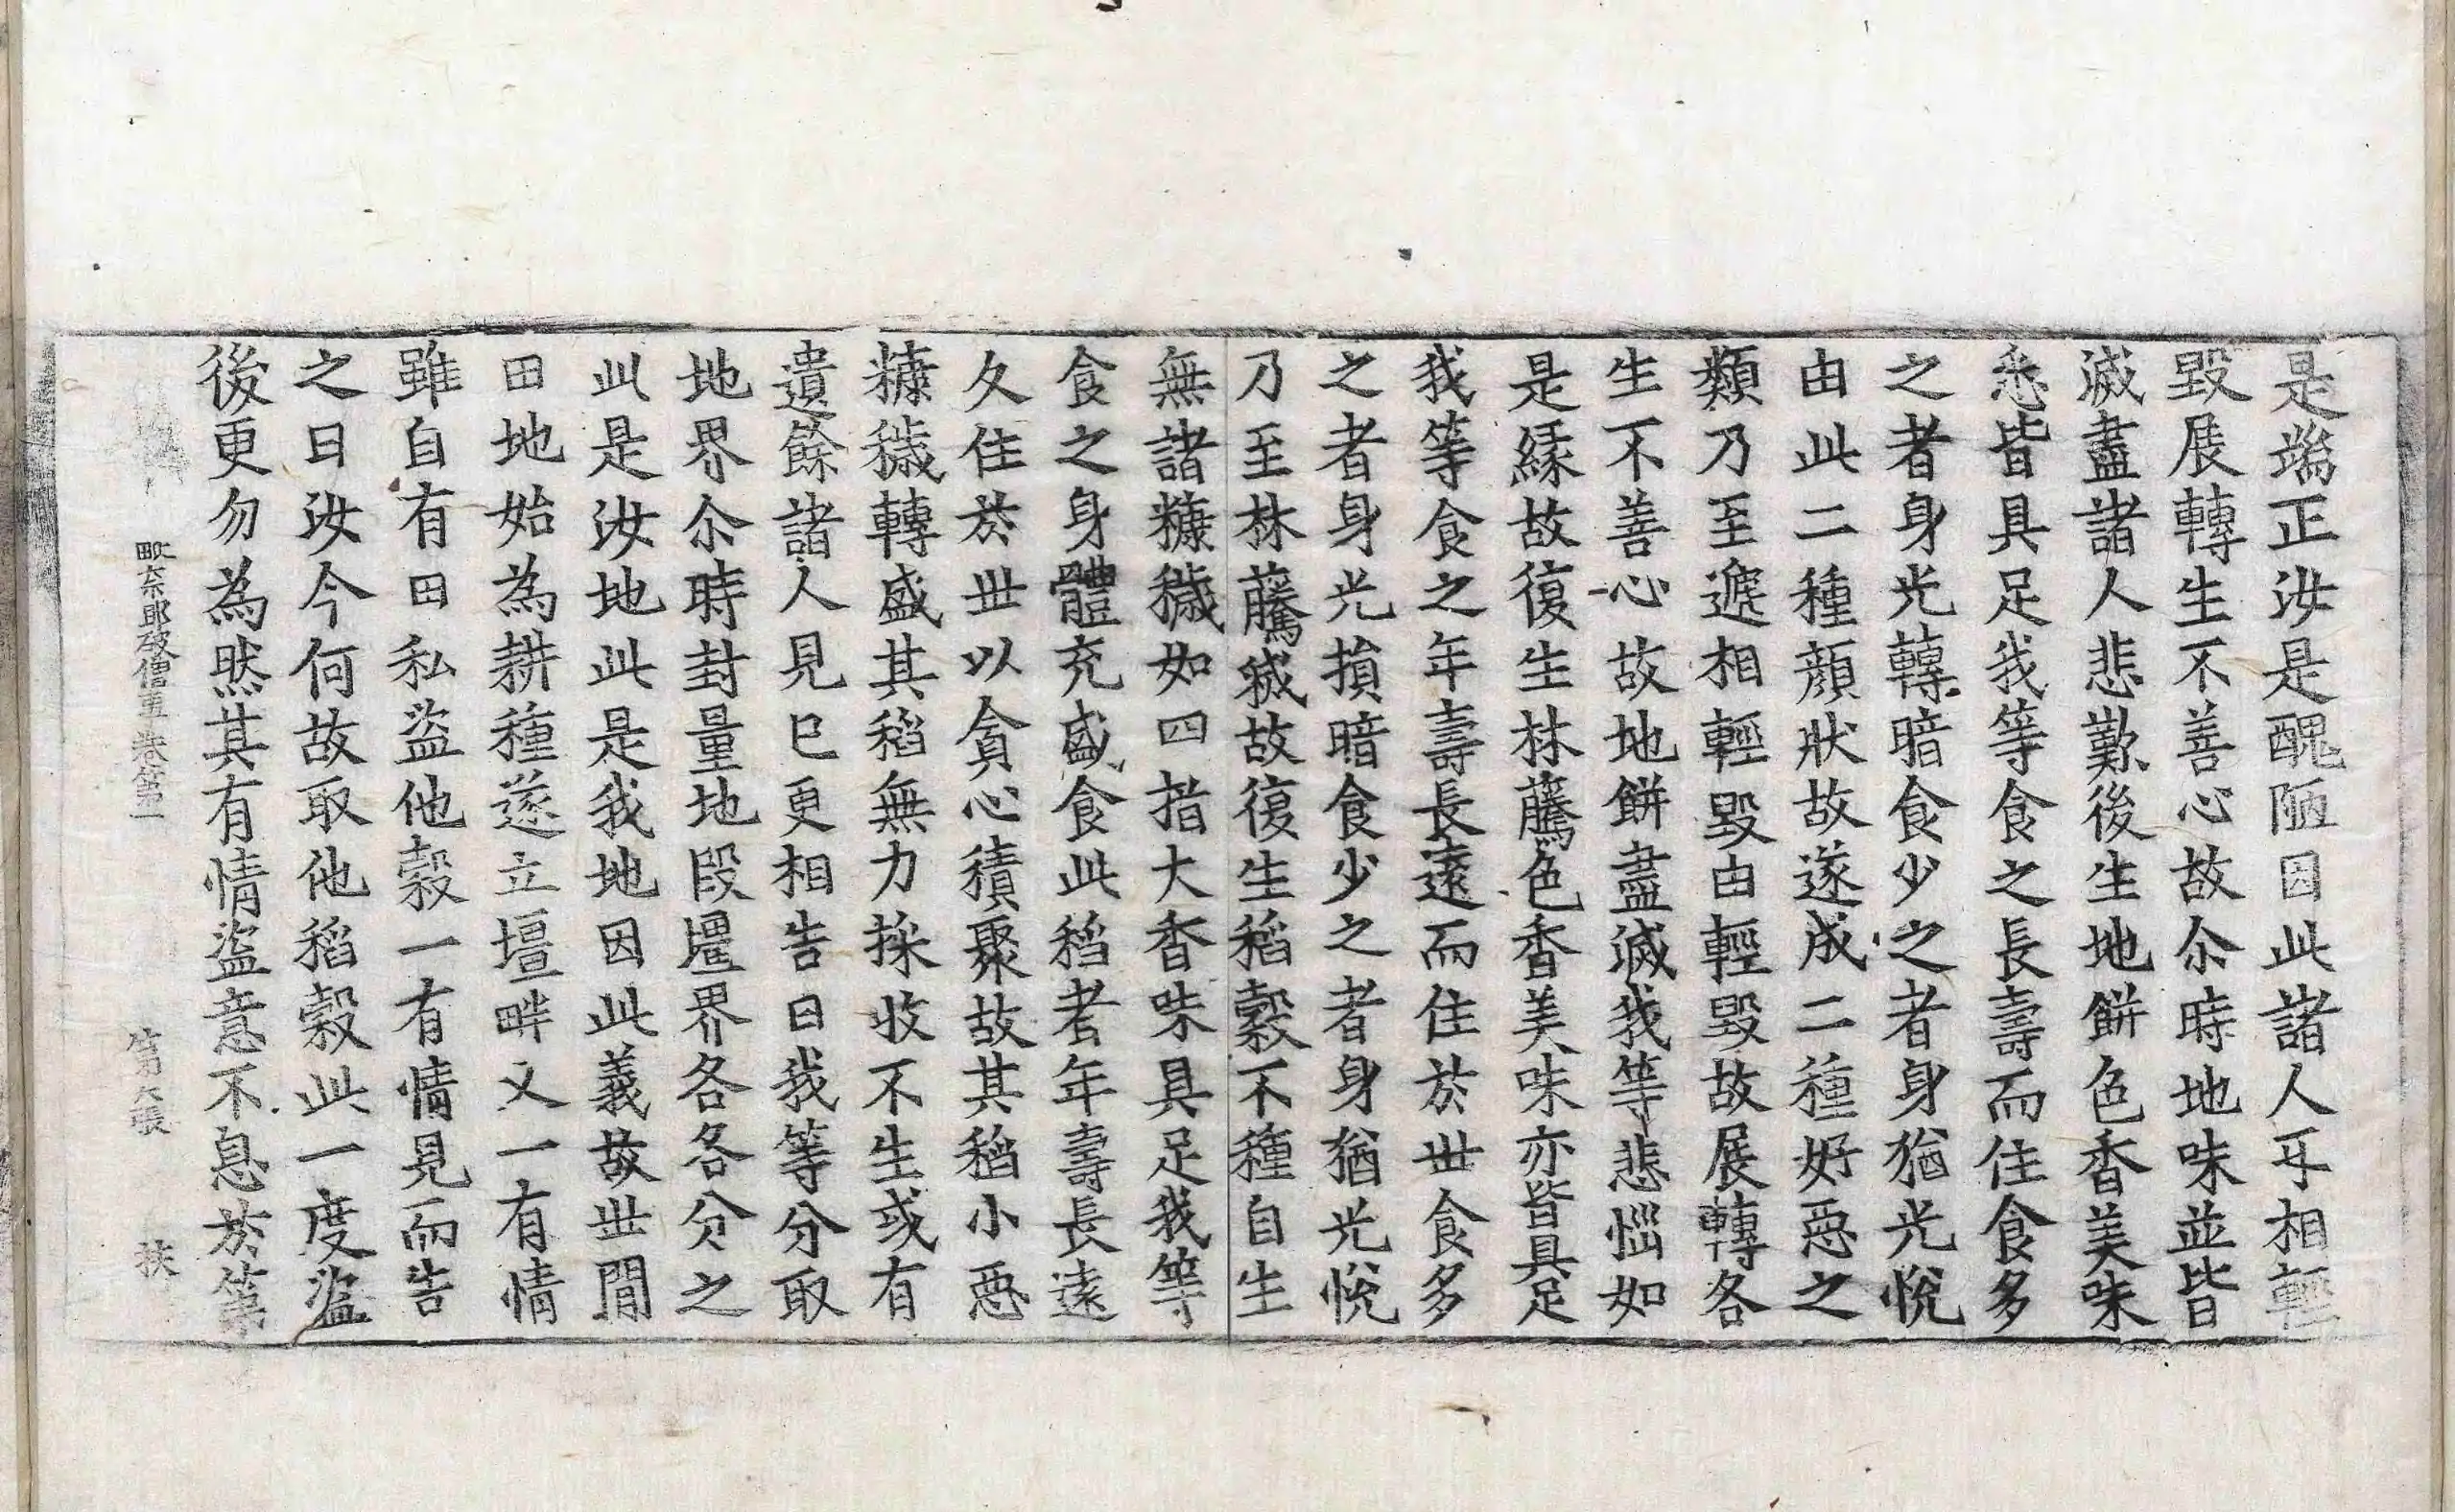 是端正汝是醜陋因此諸人互相輕
毀展轉生不善心故尒時地味並皆
滅盡諸人悲歎後生地餅色香美味
悉皆具足我等食之長壽而住食多
之者身光轉暗食少之者身猶光悅
由此二種顔狀故遂成二種好惡之
類乃至遞相輕毀由輕毀故展轉各
生不善心故地餅盡滅我等悲惱如
是緣故復生林藤色香美味亦皆具足
我等食之年壽長遠而住於世食多
之者身光損暗食少之者身猶光悅
乃至林藤滅故復生稻穀不種自生
無諸糠穢如四指大香味具足我等
食之身體充盛食此稻者年壽長遠
久住於世以貪心積聚故其稻小惡
糠穢轉盛其稻無力採收不生或有
遺餘諸人見已更相告曰我等分取
地界尒時封量地段壃界各各分之
此是汝地此是我地因此義故世間
田地始為耕種遂立壇畔又一有情
雖自有田私盜他穀一有情見而告
之曰汝今何故取他稻穀此一度盜
後更勿為然其有情盜意不息於第
毗奈耶破僧事卷第一 第六張 扶